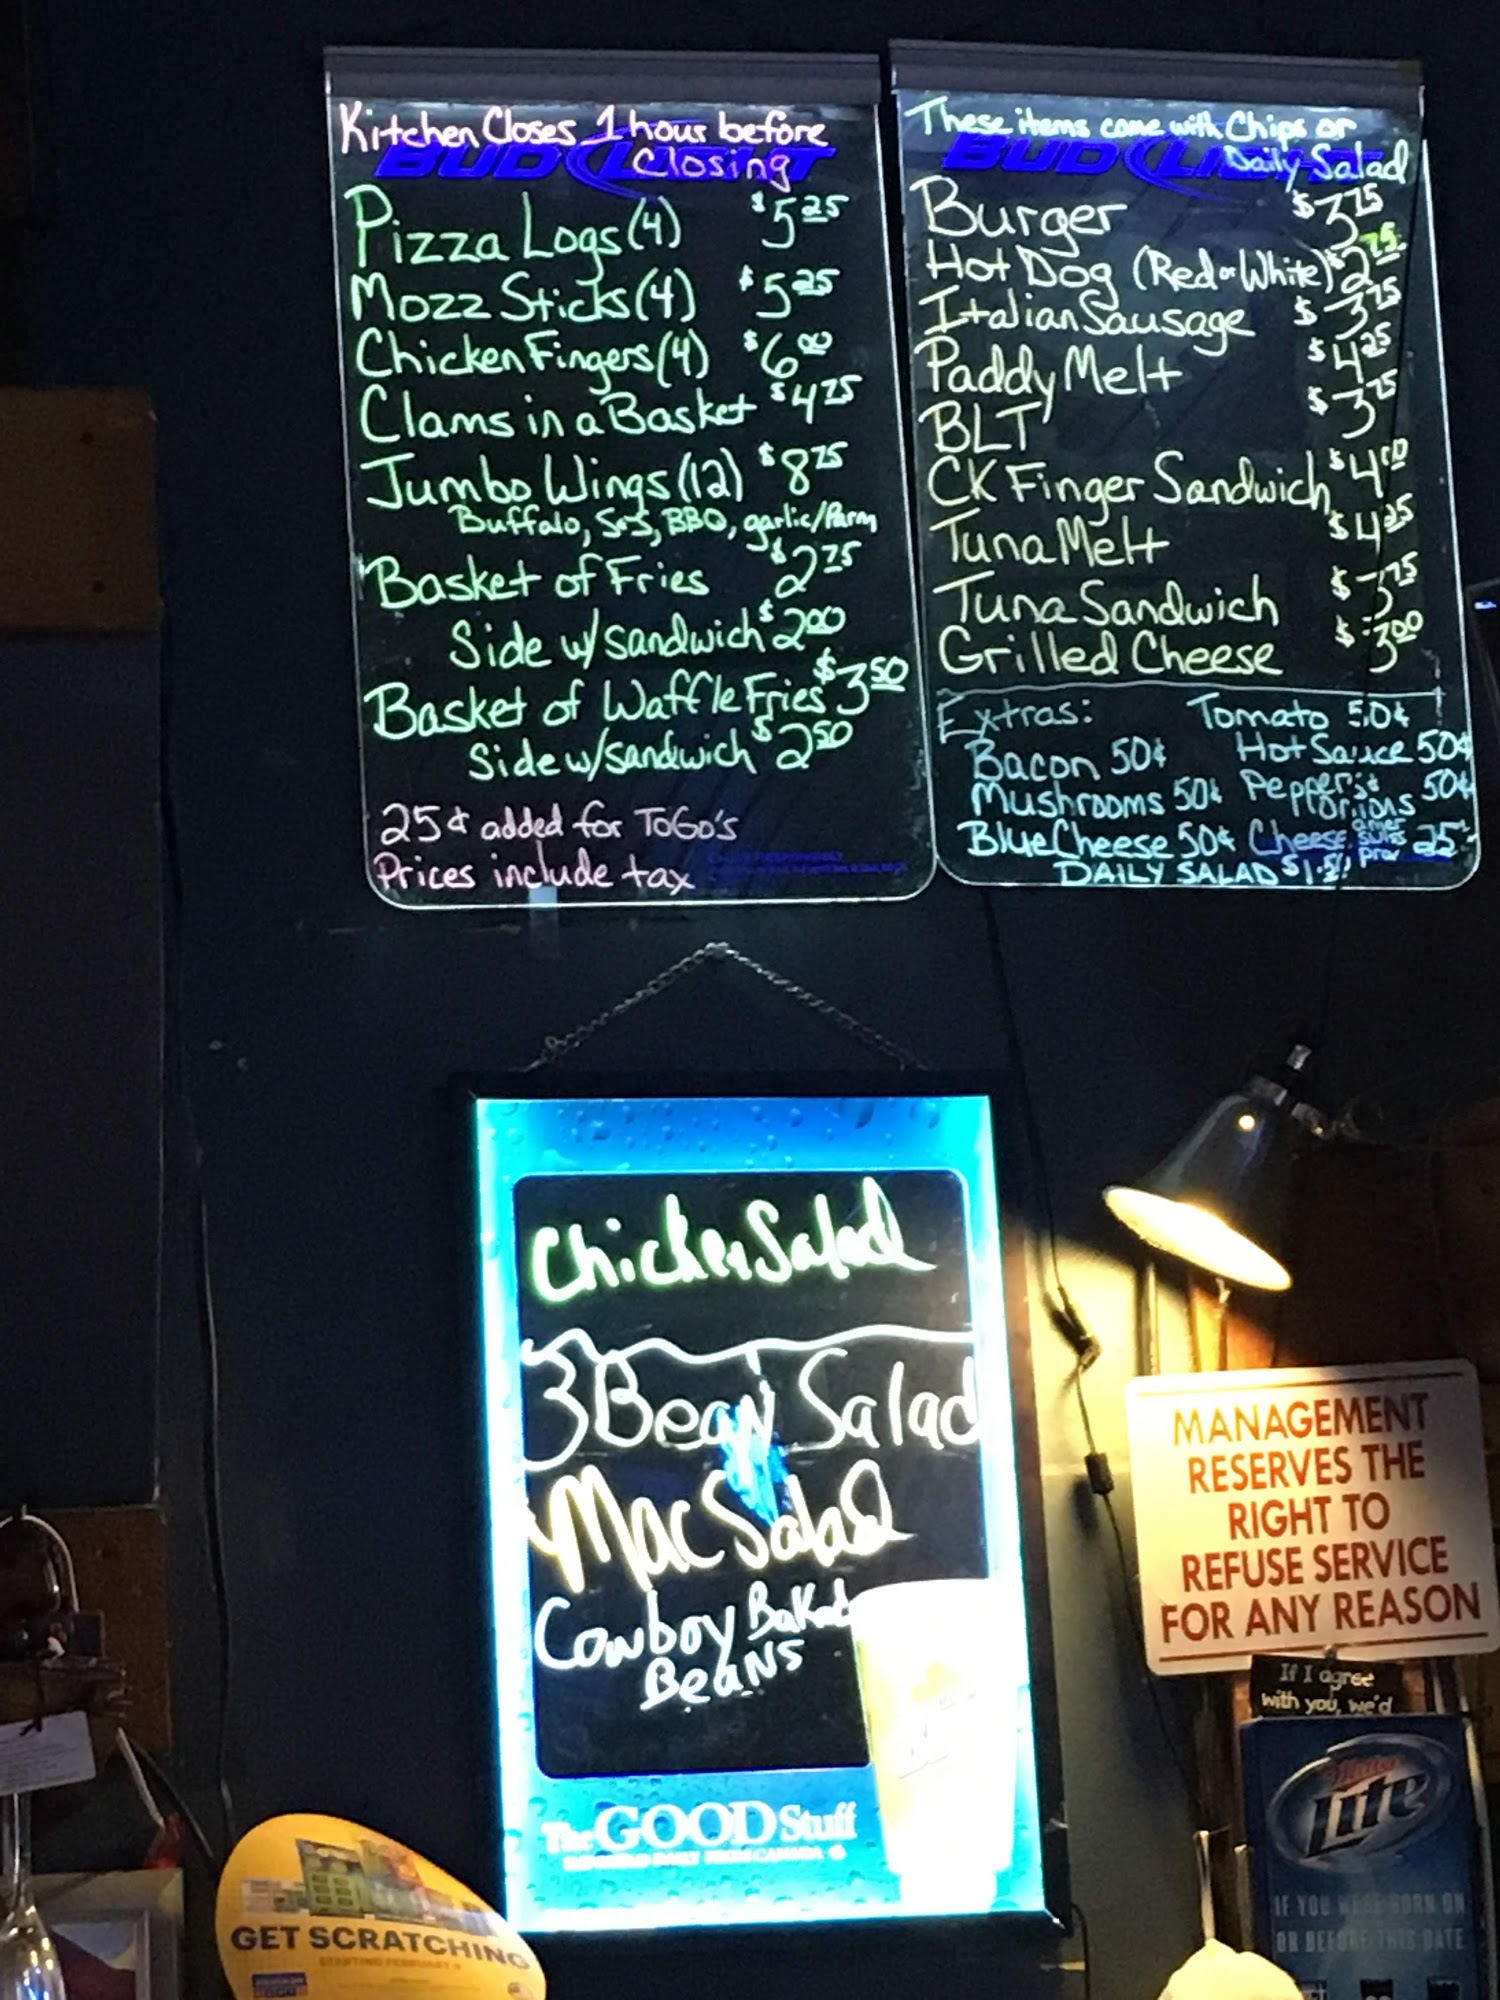 Kitchen Closes 1 hour before
Closing
BUD LIGHT
Pizza Logs (4) $5 25
Mozz Sticks (4) $5 25
Chicken Fingers (4) $6 00
Clams in a Basket $4 75
Jumbo Wings (12) $8 75
Buffalo, S&S, BBQ, garlic/Parm
Basket of Fries $2 75
Side w/ sandwich $2 00
Basket of Waffle Fries $3 50
Side w/ sandwich $2 50
25¢ added for ToGo's
Prices include tax
These items come with Chips or
Daily Salad
BUD LIGHT
Burger $3 75
Hot Dog (Red or White) $2 75
Italian Sausage $3 75
Paddy Melt $4 25
BLT $3 75
CK Finger Sandwich $4 00
Tuna Melt $4 25
Tuna Sandwich $3 75
Grilled Cheese $3 00
Extras: Tomato 50¢
Bacon 50¢ Hot Sauce 50¢
Mushrooms 50¢ Peppers & Onions 50¢
Blue Cheese 50¢ Cheese amer swiss prov 25¢
DAILY SALAD
Chicken Salad
3 Bean Salad
Mac Salad
Cowboy Baked
Beans
The GOOD Stuff
MANAGEMENT
RESERVES THE
RIGHT TO
REFUSE SERVICE
FOR ANY REASON
If I agree
with you, we'd
Miller
Lite
IF YOU WERE BORN ON
OR BEFORE THIS DATE
GET SCRATCHING
STARTING FEBRUARY